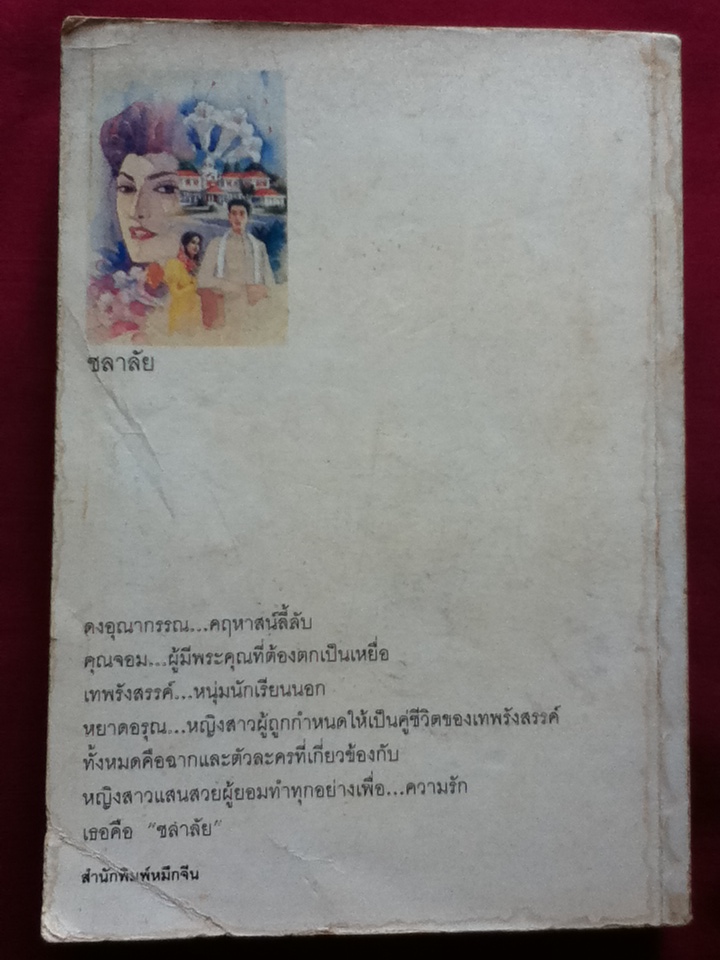 ชลาลัย
ดงอุณากรรณ...คฤหาสน์ลี้ลับ
คุณจอม...ผู้มีพระคุณที่ต้องตกเป็นเหยื่อ
เทพรังสรรค์...หนุ่มนักเรียนนอก
หยาดอรุณ...หญิงสาวผู้ถูกกำหนดให้เป็นคู่ชีวิตของเทพรังสรรค์
ทั้งหมดคือฉากและตัวละครที่เกี่ยวข้องกับ
หญิงสาวแสนสวยผู้ยอมทำทุกอย่างเพื่อ...ความรัก
เธอคือ “ชลาลัย”
สำนักพิมพ์หมึกจีน